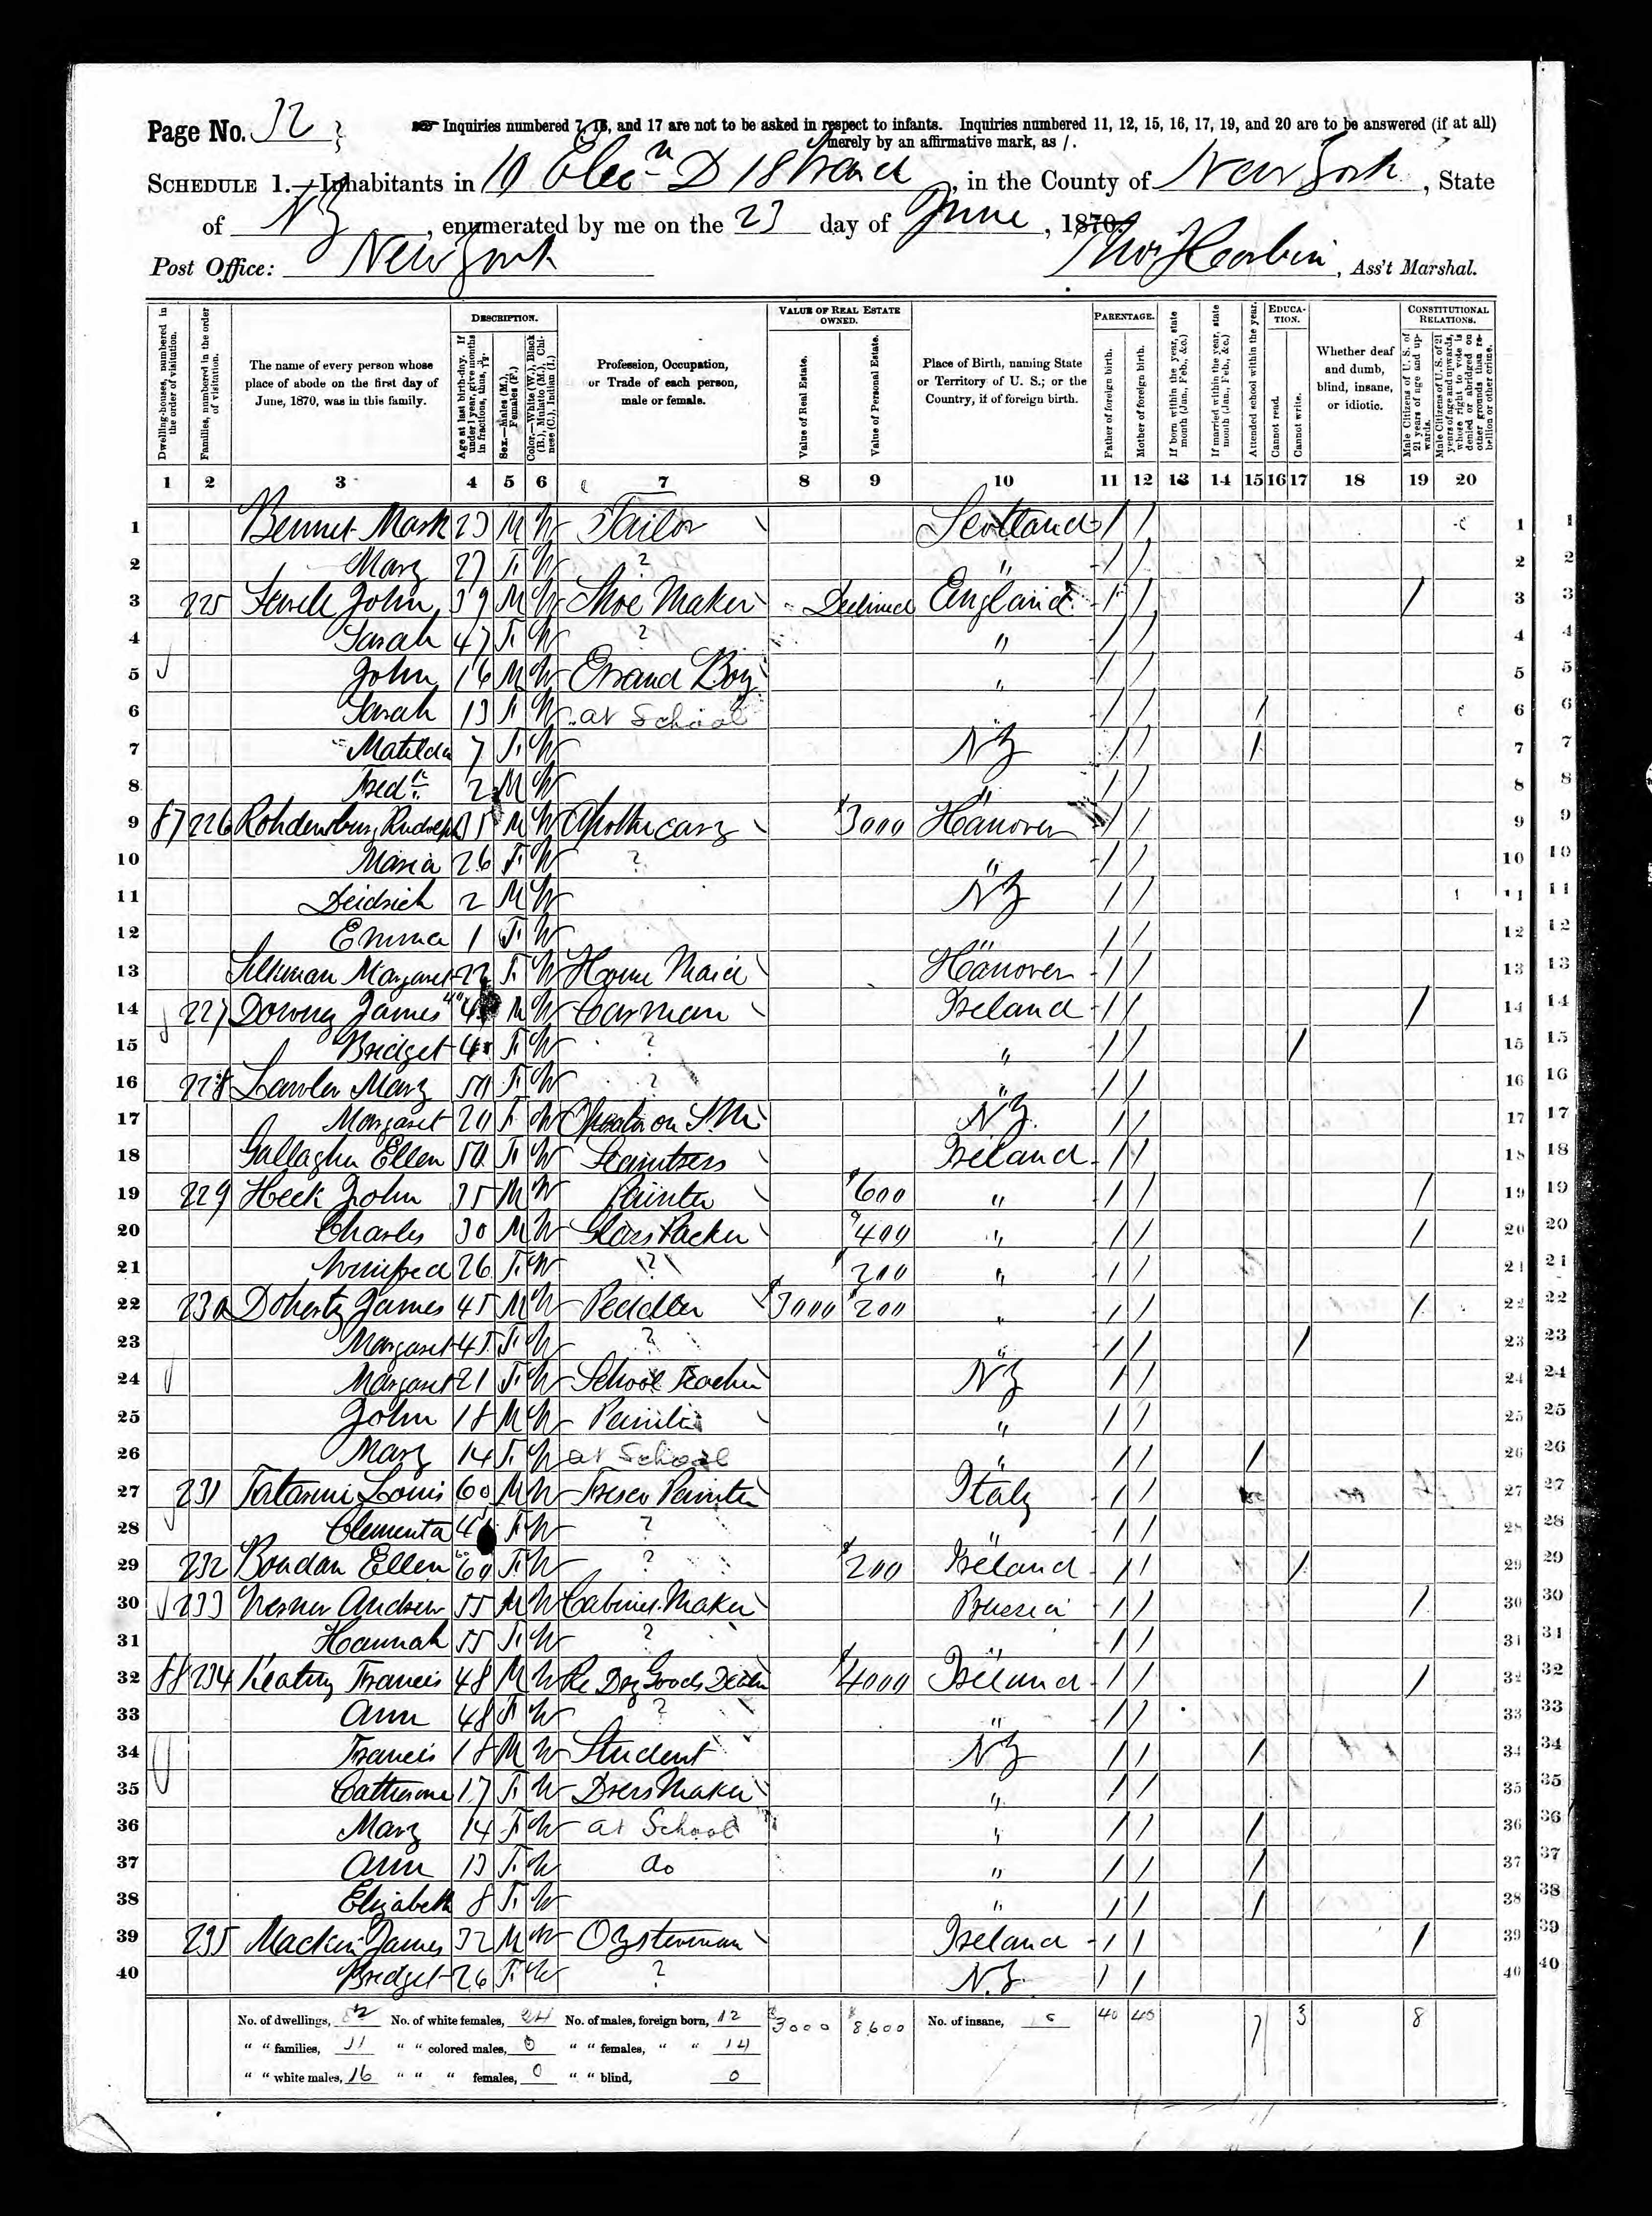 Page No. 32
Inquiries numbered 7, 16, and 17 are not to be asked in respect to infants. Inquiries numbered 11, 12, 15, 16, 17, 19, and 20 are to be answered (if at all) merely by an affirmative mark, as /.
SCHEDULE 1.—Inhabitants in 10 Elecn D 18 Ward, in the County of New York, State
of NY, enumerated by me on the 23 day of June, 1870.
Post Office: New York
Ass't Marshal.
Dwelling-houses, numbered in the order of visitation.
Families, numbered in the order of visitation.
The name of every person whose place of abode on the first day of June, 1870, was in this family.
DESCRIPTION.
Age at last birth-day. If under 1 year, give months in fractions, thus, 3/12.
Sex.—Males (M.), Females (F.)
Color.—White (W.), Black (B.), Mulatto (M.), Chinese (C.), Indian (I.)
Profession, Occupation, or Trade of each person, male or female.
VALUE OF REAL ESTATE OWNED.
Value of Real Estate.
Value of Personal Estate.
Place of Birth, naming State or Territory of U. S.; or the Country, if of foreign birth.
PARENTAGE.
Father of foreign birth.
Mother of foreign birth.
If born within the year, state month (Jan., Feb., &c.)
If married within the year, state month (Jan., Feb., &c.)
Attended school within the year.
EDUCATION.
Cannot read.
Cannot write.
Whether deaf and dumb, blind, insane, or idiotic.
CONSTITUTIONAL RELATIONS.
Male Citizens of U. S. of 21 years of age and upwards.
Male Citizens of U. S. of 21 years of age and upwards, whose right to vote is denied or abridged on other grounds than rebellion or other crime.
1 2 3 4 5 6 7 8 9 10 11 12 13 14 15 16 17 18 19 20
1 Bennet Mark 23 M W Tailor Scotland / / 1
2 Mary 27 F W ? " / / 2
3 225 John 39 M W Shoe Maker Declined England / / / 3
4 Sarah 47 F W ? " / / 4
5 John 16 M W Errand Boy " / / 5
6 Sarah 13 F W at School " / / / 6
7 Matilda 7 F W NY / / / 7
8 Fredk 2 M W " / / 8
9 87 226 Rohdenburg Rudolph 35 M W Apothecary $3000 Hanover / / 9
10 Maria 26 F W ? " / / 10
11 Deidrich 2 M W NY / / 11
12 Emma 1 F W " / / 12
13 Margaret 22 F W House Maid Hanover / / 13
14 227 Downey James M W Carman Ireland / / / 14
15 Bridget F W ? " / / / 15
16 228 Lawler Mary 50 F W ? " / / 16
17 Margaret 20 F W Operator on S.M. NY / / 17
18 Gallagher Ellen 50 F W Seamstress Ireland / / 18
19 229 Heck John 35 M W Painter $600 " / / / 19
20 Charles 30 M W Glass Packer $400 " / / / 20
21 Winifred 26 F W ? 200 " / / 21
22 230 Doherty James 45 M W Peddler $3000 $200 " / / / 22
23 Margaret 45 F W ? " / / / 23
24 Margaret 21 F W School Teacher NY / / 24
25 John 18 M W Painter " / / 25
26 Mary 14 F W at School " / / / 26
27 231 Louis 60 M W Fresco Painter Italy / / 27
28 Clementa F W ? " / / 28
29 232 Ellen 60 F W ? $200 Ireland / / / 29
30 233 Andrew 55 M W Cabinet Maker Prussia / / / 30
31 Hannah 55 F W ? " / / 31
32 88 234 Keating Francis 48 M W Re Dry Goods Dealer $4000 Ireland / / / 32
33 Ann 48 F W ? " / / 33
34 Francis 18 M W Student NY / / / 34
35 Catherine 17 F W Dress Maker " / / 35
36 Mary 14 F W at School " / / / 36
37 Ann 13 F W do " / / / 37
38 Elizabeth 8 F W " / / / 38
39 235 Mackin James 32 M W Oysterman Ireland / / / 39
40 Bridget 26 F W ? N.Y. / / 40
No. of dwellings, No. of white females, 24 No. of males, foreign born, 12 $3000 $8600 No. of insane, 0 40 40 7 3 8
" " families, 11 " " colored males, 0 " " females, " " 14
" " white males, 16 " " " females, 0 " " blind, 0